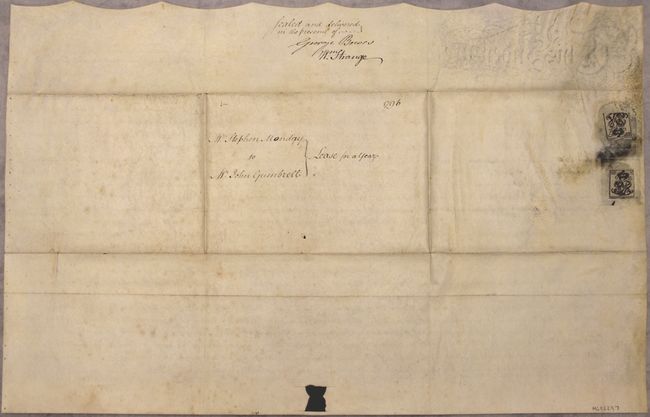 Sealed and delivered
in the presence of
George Bowes
Wm. Strange
1796
Mr. Stephen Mondey
to
Mr. John Gumbrell
Lease for a Year